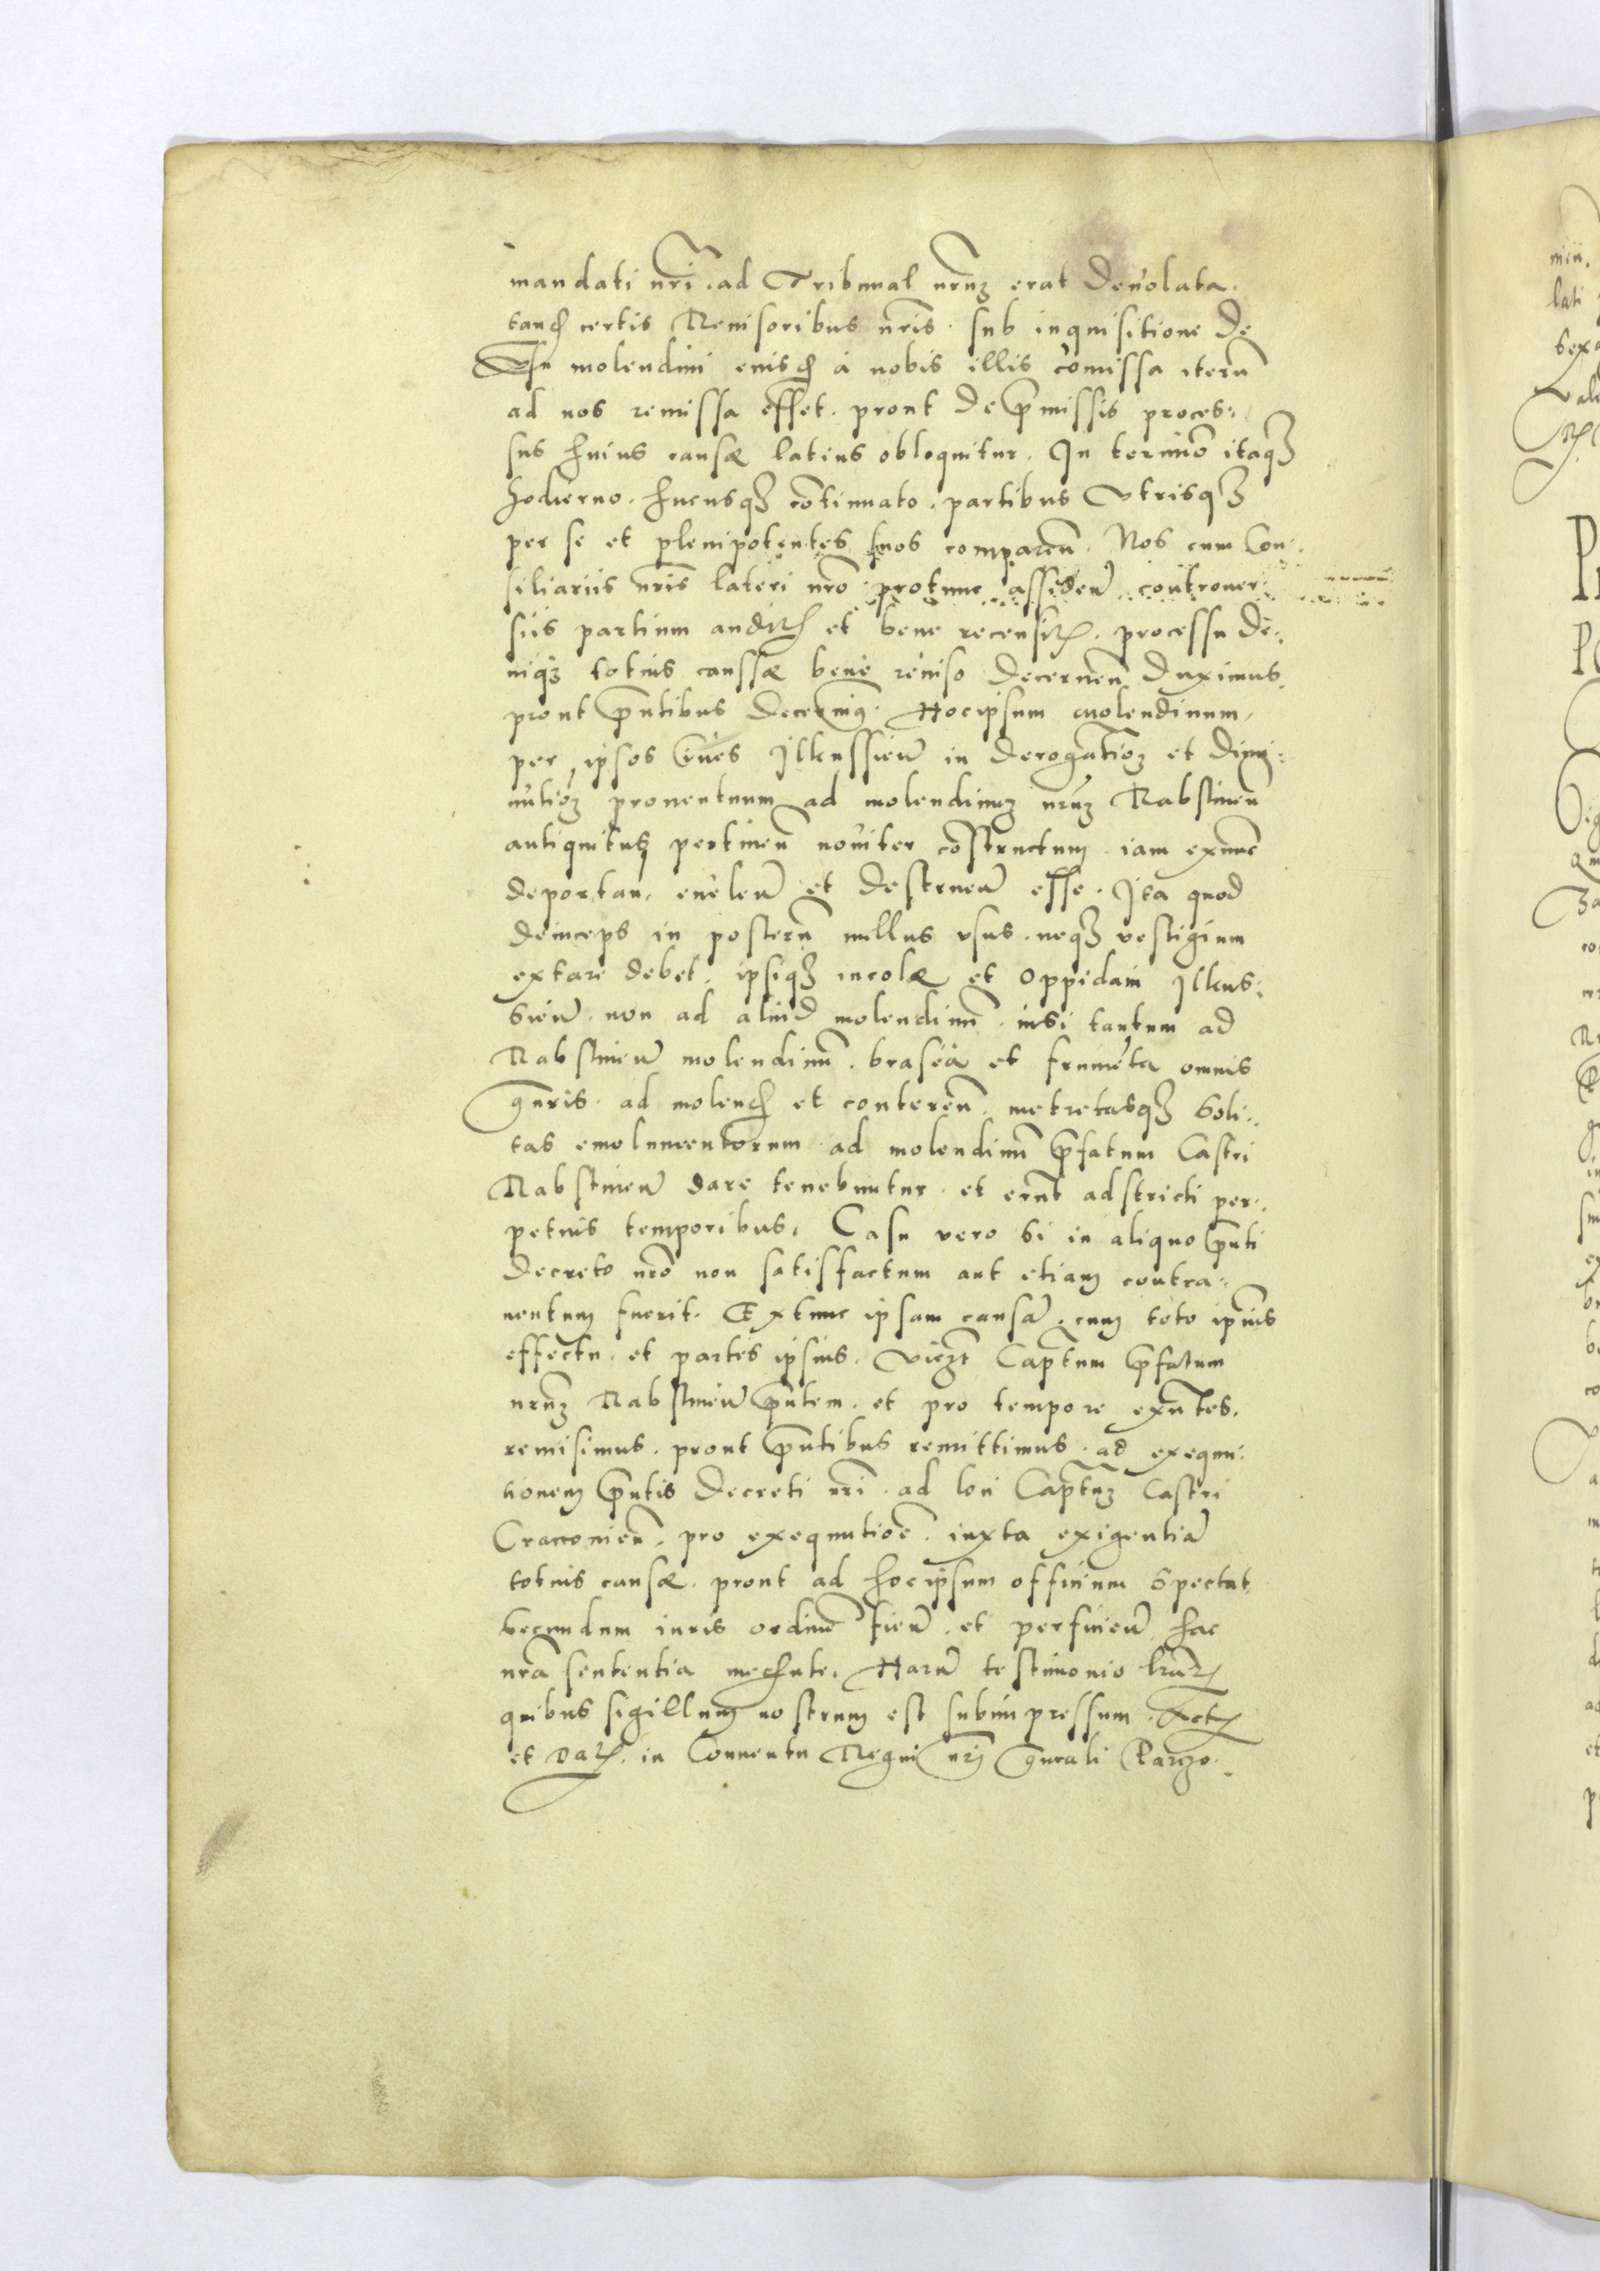 mandati nr̃i. ad Tribunal nr̃um erat devoluta.
tand. certis Revisoribus nr̃is. sub inquisitione de
Usu molendini eiusd. à nobis illis com̃issa iterũ
ad nos remissa esset. prout de p̃missis proces:
sus huius causæ latius obloquitur. In termino itaq3
hodierno. hucusq3 cõtinuato. partibus Utrisq3
per se et plenipotentes suos comparen̄. Nos cum Con:
siliariis nr̃is lateri nr̃o protunc assiden̄. controver:
siis partium audit. et bene recensit. processu de:
niq3 totius caussæ bene reviso decernen̄ duximus.
prout p̃ntibus decernim9. Hoc ipsum molendinum,
per ipsos Cives Ilkussien̄ in derogatio3 et dimi:
nutio3 proventuum ad molendinu3 nr̃um Rabstinen̄
antiquitus pertinen̄ noviter cõstructum. iam exnunc
deportan. evelen̄ et destruen̄ esse. Ita quod
deinceps in posterũ nullus usus. neq3 vestigium
extare debet. ipsiq3 incolæ et oppidani Ilkus:
sien̄. non ad aliud molendinũ. nisi tantum ad
Rabstinen̄ molendinũ. brasea et frumẽta omnis
gñris. ad molend. et conteren̄. metretasq3 soli:
tas emolumentorum. ad molendinũ p̃fatum Castri
Rabstinen̄ dare tenebuntur. et erũt adstricti per:
petuis temporibus. Casu vero si in aliquo p̃nti
decreto nr̃o non satisfactum aut etiam contra:
ventum fuerit. Extunc ipsam causã. cum toto ipsius
effectu. et partes ipsius. vicz̃t Cap̃tum p̃fatum
nr̃um Rabstinen̄ p̃ntem. et pro tempore exñtes.
remisimus. prout p̃ntibus remittimus. ad exequu:
tionem p̃ntis decreti nr̃i. ad loci Cap̃tum Castri
Cracovien̄. pro exequutiõe. iuxta exigentiã
totius causæ. prout ad hoc ipsum officium spectat
secundum iuris ordinẽ fien̄. et perficien̄. hac
nr̃a sententia mediante. Harũ testimonio lr̃ar.
quibus sigillum nostrum est subimpressum. Act.
et Dat. in Conventu Regni nr̃i gñrali Parczo: